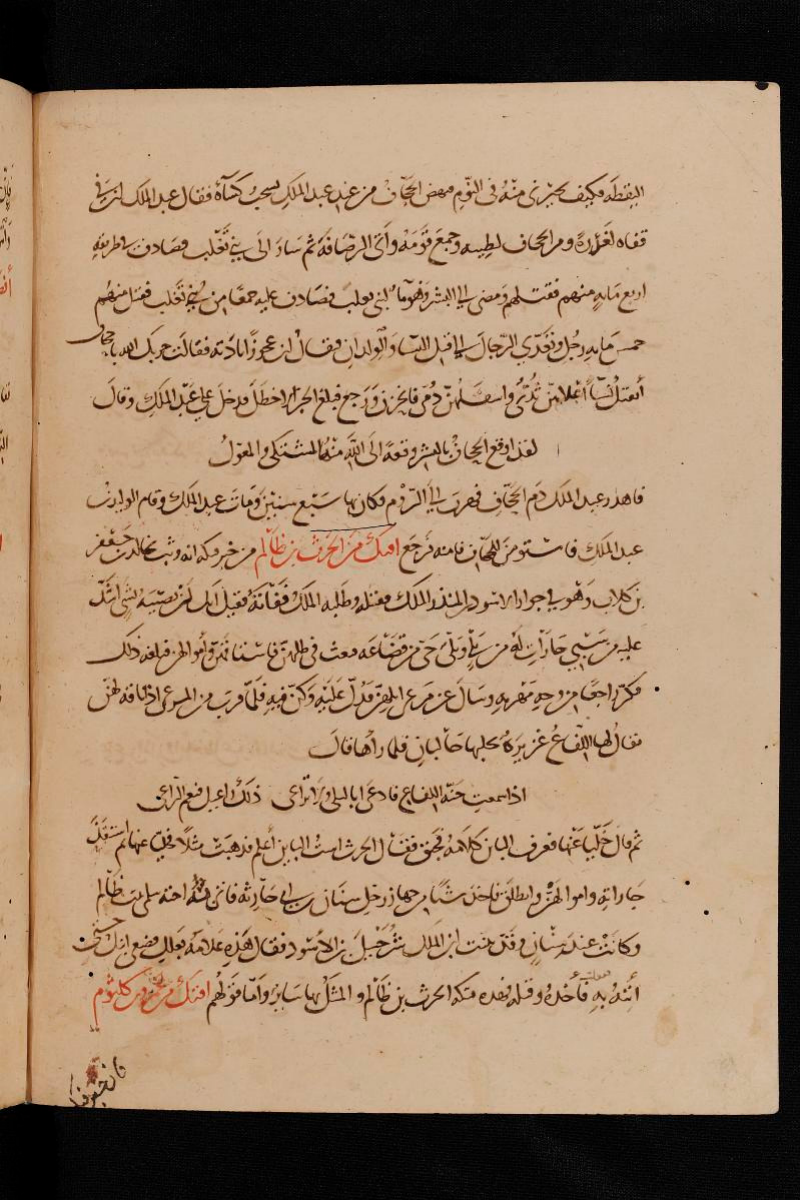 اليقظة فكيف تجيرني منه في النوم فنهض الجحاف من عند عبد الملك يسحب كساءه فقال عبد الملك ان في
قفاه لغدرة ومر الجحاف لطيته وجمع قومه وأتى الرصافة ثم سار الى بني تغلب فصادف في طريقه
اربع مايه منهم فقتلهم ومضى الى البشر وهو ماء لبني تغلب فصادف عليه جمعا من بني تغلب فقتل منهم
خمس مايه رجل وتعدى الرجال الى قتل النسا والولدان فيقال ان عجوزا نادته فقالت حربك الله يا جحاف
أتقتل نسآ أعلاهن ثدي واسفلهن دمى فانخزل ورجع فبلغ الخبر الاخطل فدخل على عبد الملك وقال
لقد اوقع الجحاف بالبشر وقعة الى الله منها المشتكى والمعول
فاهدر عبد الملك دم الجحاف فهرب الى الروم فكان بها سبع سنين ومات عبد الملك وقام الوليد بن
عبد الملك فاستومن للجحاف فامنه فرجع افتك من الحرث بن ظالم من خبر فتكه انه وثب بخالد بن جعفر
بن كلاب وهو في جوار الاسود بن المنذر الملك فقتله وطلبه الملك ففاته فقيل له انك لن تصيبه بشي اشد
عليه من سبي جارات له من بلي وبلي حي من قضاعه فبعث في طلبهن فاستاقهن واموالهن فبلغه ذلك
فكر راجعا من وجه مهربه وسال عن مرعى ابلهن فدل عليه وكن فيه فلما قرب من المرعى اذا ناقة لهن
يقال لها اللفاع غزيرة يحلبها حالبان فلما رآها قال
اذا سمعت حنة اللفاع فادعي ابا ليلى ولا تراعي ذلك راعيك فنعم الراعي
ثم قال خليا عنها فعرف البائن كلامه فحبق فقال الحرث است البائن أعلم فذهبت مثلا فخليا عنها ثم استنقذ
جاراته واموالهن وانطلق فاخذ شيا من جهاز رحل سنان بن ابي حارثه فاتى به اخته سلمى بنت ظالم
وكانت عند سنان وقد تبنت ابن الملك شرحبيل بن الاسود فقال هذه علامة بعلك فضعي ابنك حتى
أتيه به ففعلت فأخذه وقتله فهذه فتكة الحرث بن ظالم والمثل بها سائر وأما قولهم افتك من عمرو بن كلثوم
فان خبر فتكه